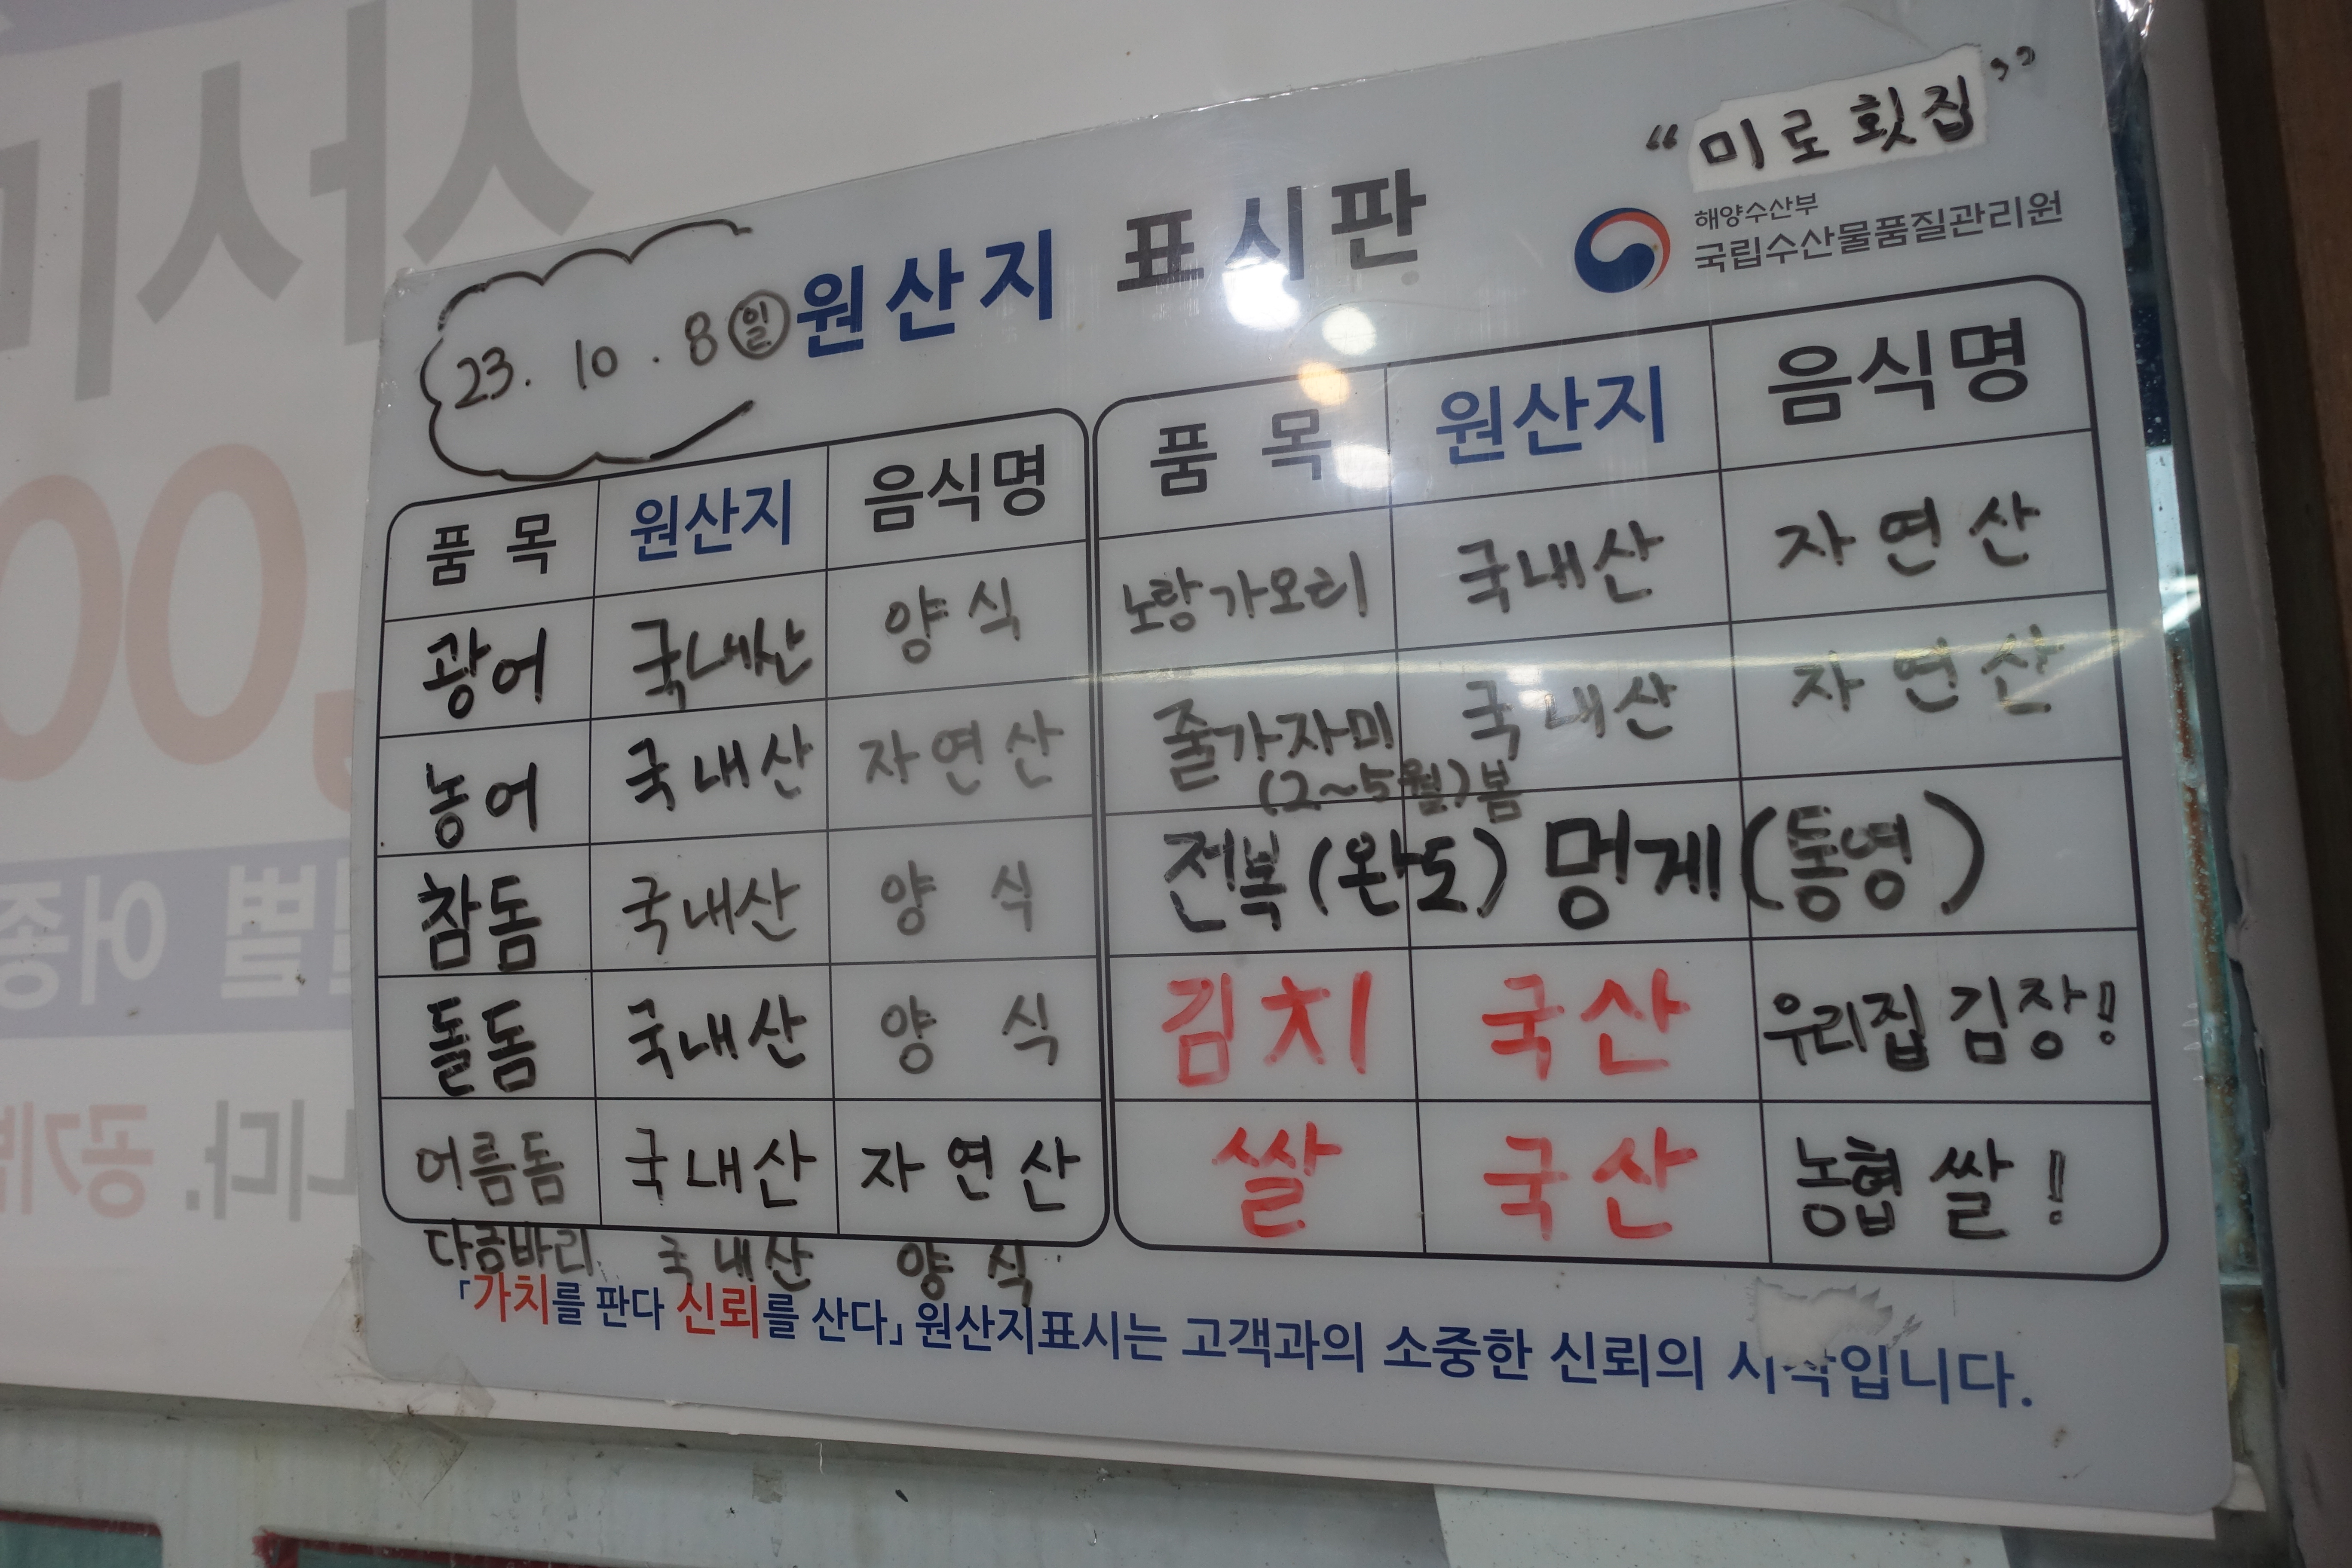 "미로횟집"
해양수산부
국립수산물품질관리원
23. 10. 8 일
원산지 표시판
품 목 원산지 음식명
광어 국내산 양식
농어 국내산 자연산
참돔 국내산 양 식
돌돔 국내산 양 식
어름돔 국내산 자연산
다금바리 국내산 양 식
품 목 원산지 음식명
노랑가오리 국내산 자연산
줄가자미 국내산 자연산
(2~5월)봄
전복(완도) 멍게(통영)
김치 국산 우리집 김장!
쌀 국산 농협 쌀!
「가치를 판다 신뢰를 산다」 원산지표시는 고객과의 소중한 신뢰의 시작입니다.